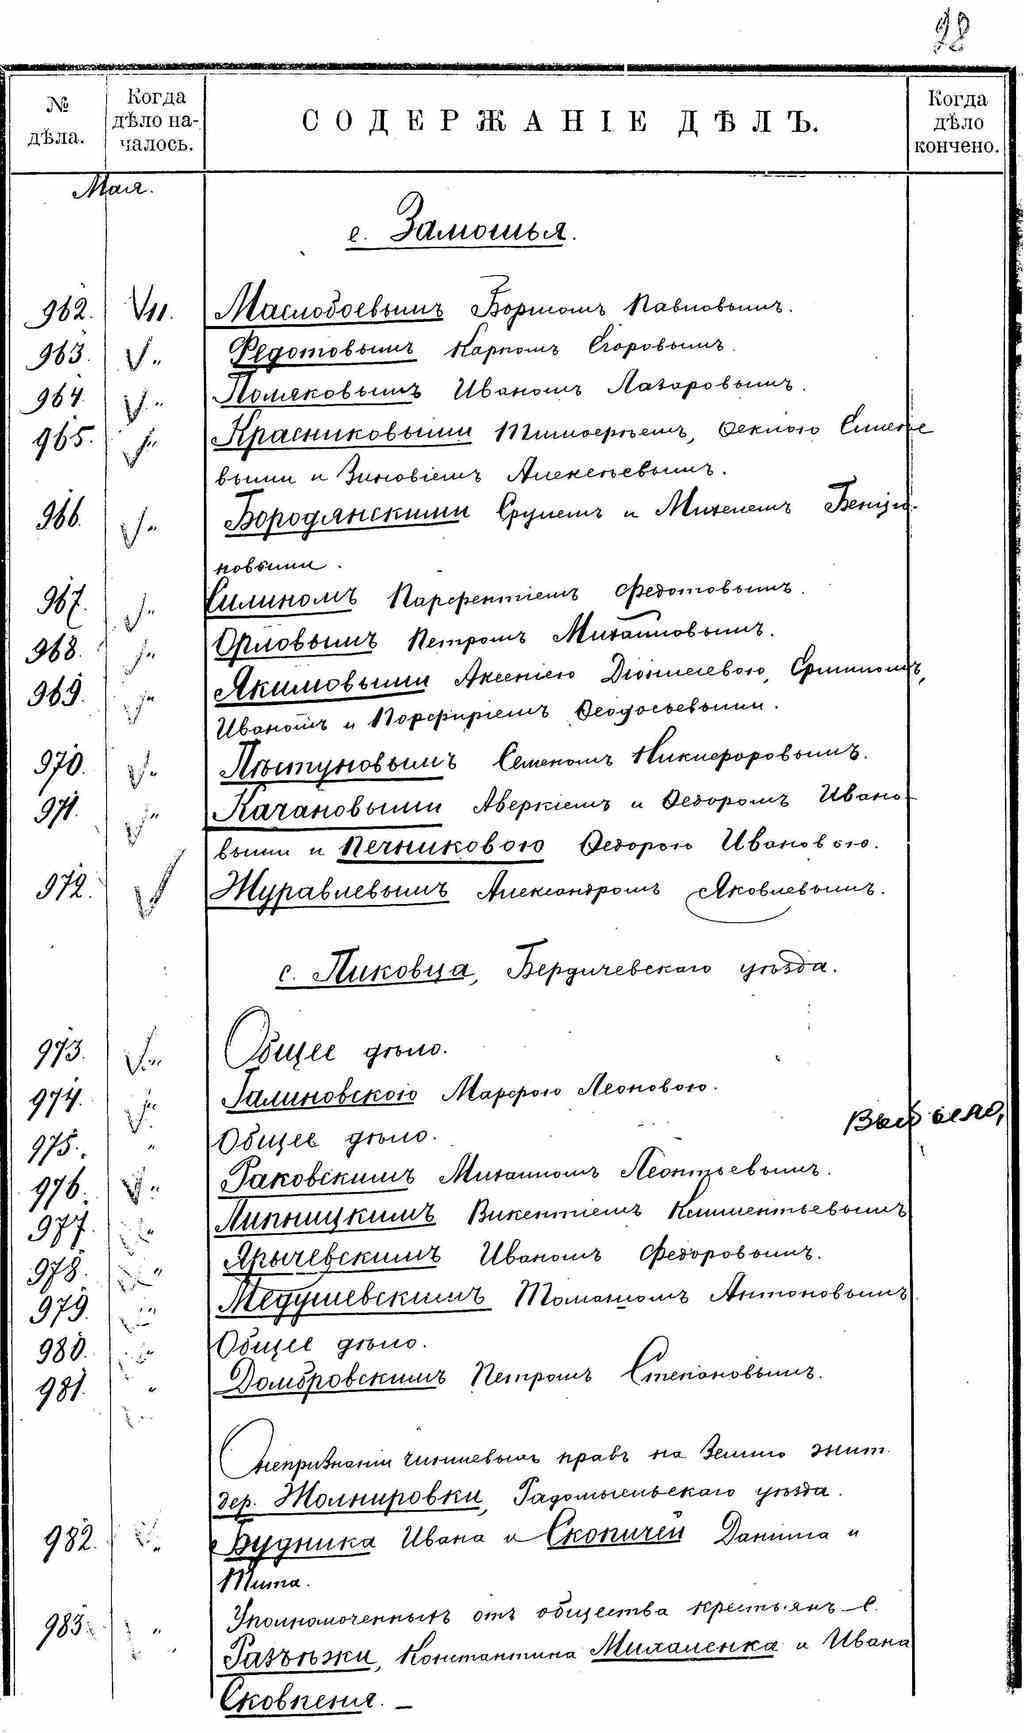 98
№ дѣла.
Когда дѣло началось.
СОДЕРЖАНІЕ ДѢЛЪ.
Когда дѣло кончено.
Мая.
с. Замошья.
962. VII. Маслобоевымъ Павловымъ.
963. V " Федотовымъ Карпомъ Егоровымъ.
964. V " Поляковымъ Иваномъ Лазаровымъ.
965. V " Красниковыми Тимоѳеемъ, Ѳеклою Семене
выми и Зиновіемъ Алексѣевымъ.
966. V " Бородянскими Срулемъ и Михелемъ Бенціо-
новыми.
967. V " Силиномъ Парфентіемъ Федотовымъ.
968. V " Орловымъ Петромъ Михайловымъ.
969. V " Якимовыми Аксеніею Діонисіевою, Ермиломъ,
Иваномъ и Порфиріемъ Ѳеодосьевыми.
970. V " Пѣтуновымъ Семеномъ Никифоровымъ.
971. V " Качановыми Аверкіемъ и Ѳедоромъ Ивано-
выми и Печниковою Ѳедорою Ивановою.
972. V Журавлевымъ Александромъ Яковлевымъ.
с. Пиковца, Бердичевскаго уѣзда.
973. V " Общее дѣло.
974. V " Галиновскою Марфою Леоновою.
975. " Общее дѣло. Выбыло,
976. V " Раковскимъ Михаиломъ Леонтьевымъ.
977. " Липницкимъ Викентіемъ Климентьевымъ
978. " Ярычевскимъ Иваномъ Федоровымъ.
979. " Медушевскимъ Томашомъ Антоновымъ
980. " Общее дѣло.
981. " Домбровскимъ Петромъ Степановымъ.
О непризнаніи чиншевыхъ правъ на землю жит.
дер. Жолнировки, Радомысльскаго уѣзда.
982. " Будника Ивана и Скопичей Даніила и
Тита.
983. " Уполномоченныхъ отъ общества крестьянъ с.
Разъѣзжи, Константина Миланенка и Ивана
Сковпеня. —